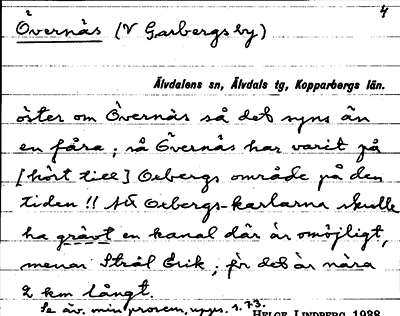 4
2
Övernäs (V Garbergs by)
Älvdalens sn, Älvdals tg, Kopparbergs län.
öster om Övernäs så det syns än
en fåra; så Övernäs har varit på
[hört till] Oxbergs område på den
tiden!! Att Oxbergs-karlarna skulle
ha grävt en kanal där är omöjligt,
menar Strål Erik, för det är nära
2 km långt.
Se äv. min provex, upps. s. 73.
HELGE LINDBERG 1988